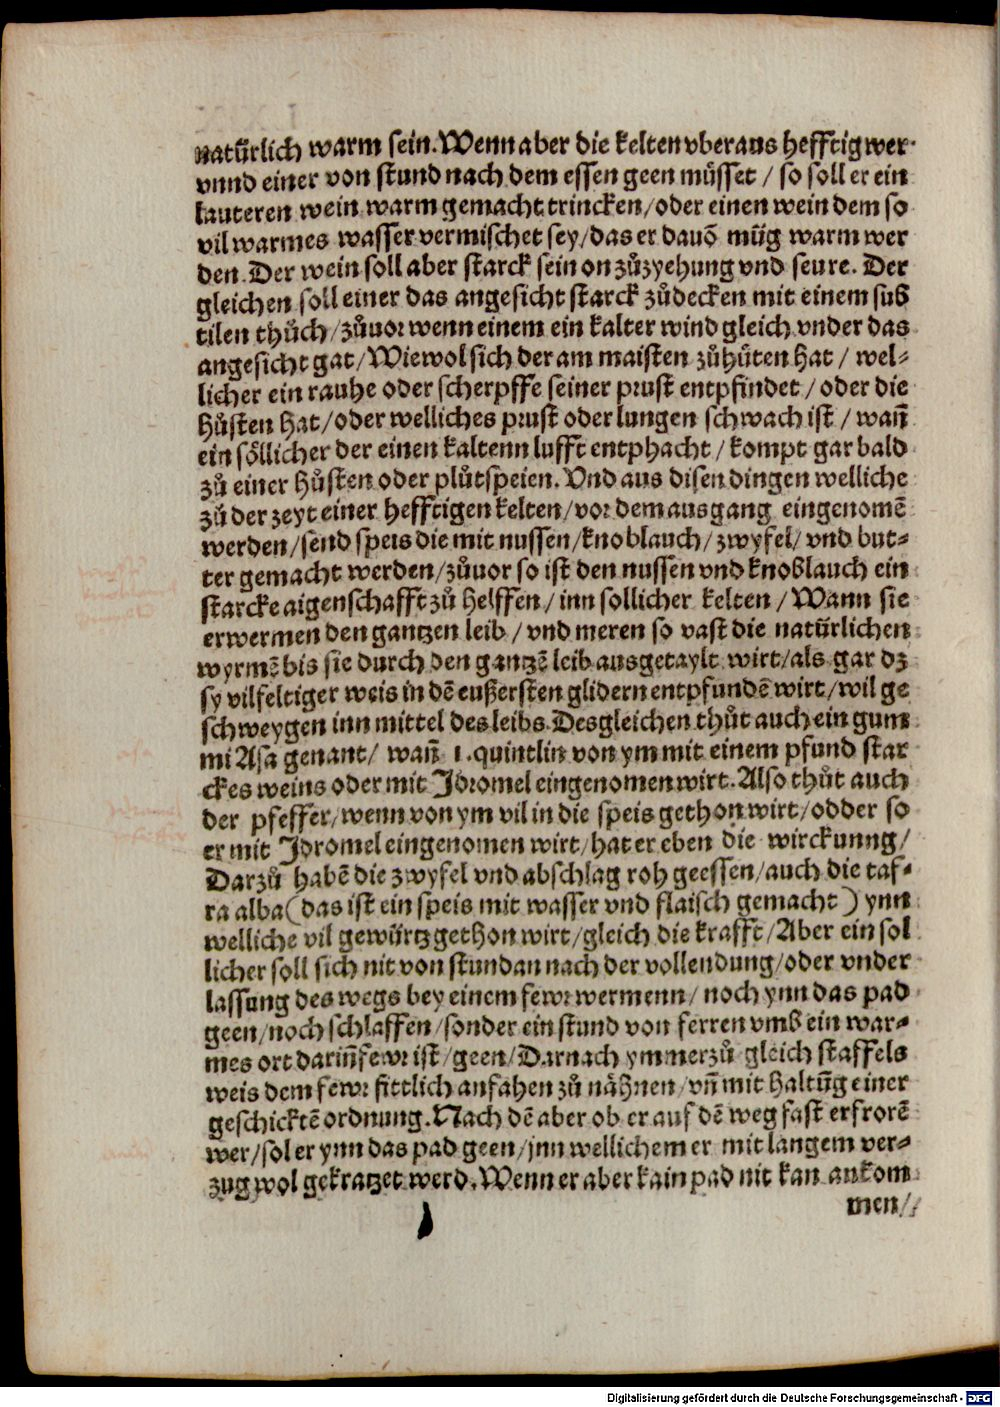 natürlich warm sein. Wenn aber die kelten vberaus hefftig wer
vnnd einer von stund nach dem essen geen müsset / so soll er ein
lauteren wein warm gemacht trincken / oder einen wein dem so
vil warmes wasser vermischet sey / das er dauõ müg warm wer
den. Der wein soll aber starck sein on zůzyehung vnd seure. Der
gleichen soll einer das angesicht starck zůdecken mit einem sub
tilen thůch / zůuor wenn einem ein kalter wind gleich vnder das
angesicht gat / Wiewol sich der am maisten zůhüten hat / wel-
licher ein rauhe oder scherpffe seiner prust entpfindet / oder die
hůsten hat / oder welliches prust oder lungen schwach ist / wañ
ein söllicher der einen kaltenn lufft entphacht / kompt gar bald
zů einer hůsten oder plůtspeien. Vnd aus disen dingen welliche
zů der zeyt einer hefftigen kelten / vor dem ausgang eingenomẽ
werden / send speis die mit nussen / knoblauch / zwyfel / vnd but-
ter gemacht werden / zůuor so ist den nussen vnd knoblauch ein
starcke aigenschafft zů helffen / inn sollicher kelten / Wann sie
erwermen den gantzen leib / vnd meren so vast die natürlichen
wyrmẽ bis sie durch den gantzẽ leib ausgetaylt wirt / als gar dz
sy vilfeltiger weis in dẽ eußersten glidern entpfundẽ wirt / wil ge
schweygen inn mittel des leibs. Desgleichen thůt auch ein gum
mi Asa genant / wañ 1. quintlin von ym mit einem pfund star
ckes weins oder mit Idromel eingenomen wirt. Also thůt auch
der pfeffer / wenn von ym vil in die speis gethon wirt / odder so
er mit Idromel eingenomen wirt / hat er eben die wirckunng /
Darzů habẽ die zwyfel vnd abschlag roh geessen / auch die taf-
ra alba (das ist ein speis mit wasser vnd flaisch gemacht) ynn
welliche vil gewürtz gethon wirt / gleich die krafft / Aber ein sol
licher soll sich nit von stundan nach der vollendung / oder vnder
lassung des wegs bey einem fewr wermenn / noch ynn das pad
geen / noch schlaffen / sonder ein stund von ferren vmb ein war-
mes ort dariñ fewr ist / geen / Darnach ymmerzů gleich staffels
weis dem fewr sittlich anfahen zů nähnen / vñ mit haltũg einer
geschicktẽ ordnung. Nach dẽ aber ob er auf dẽ weg fast erfrorẽ
wer / sol er ynn das pad geen / jnn wellichem er mit langem ver-
zug wol gekratzet werd. Wenn er aber kain pad nit kan ankom
men /
Digitalisierung gefördert durch die Deutsche Forschungsgemeinschaft - DFG